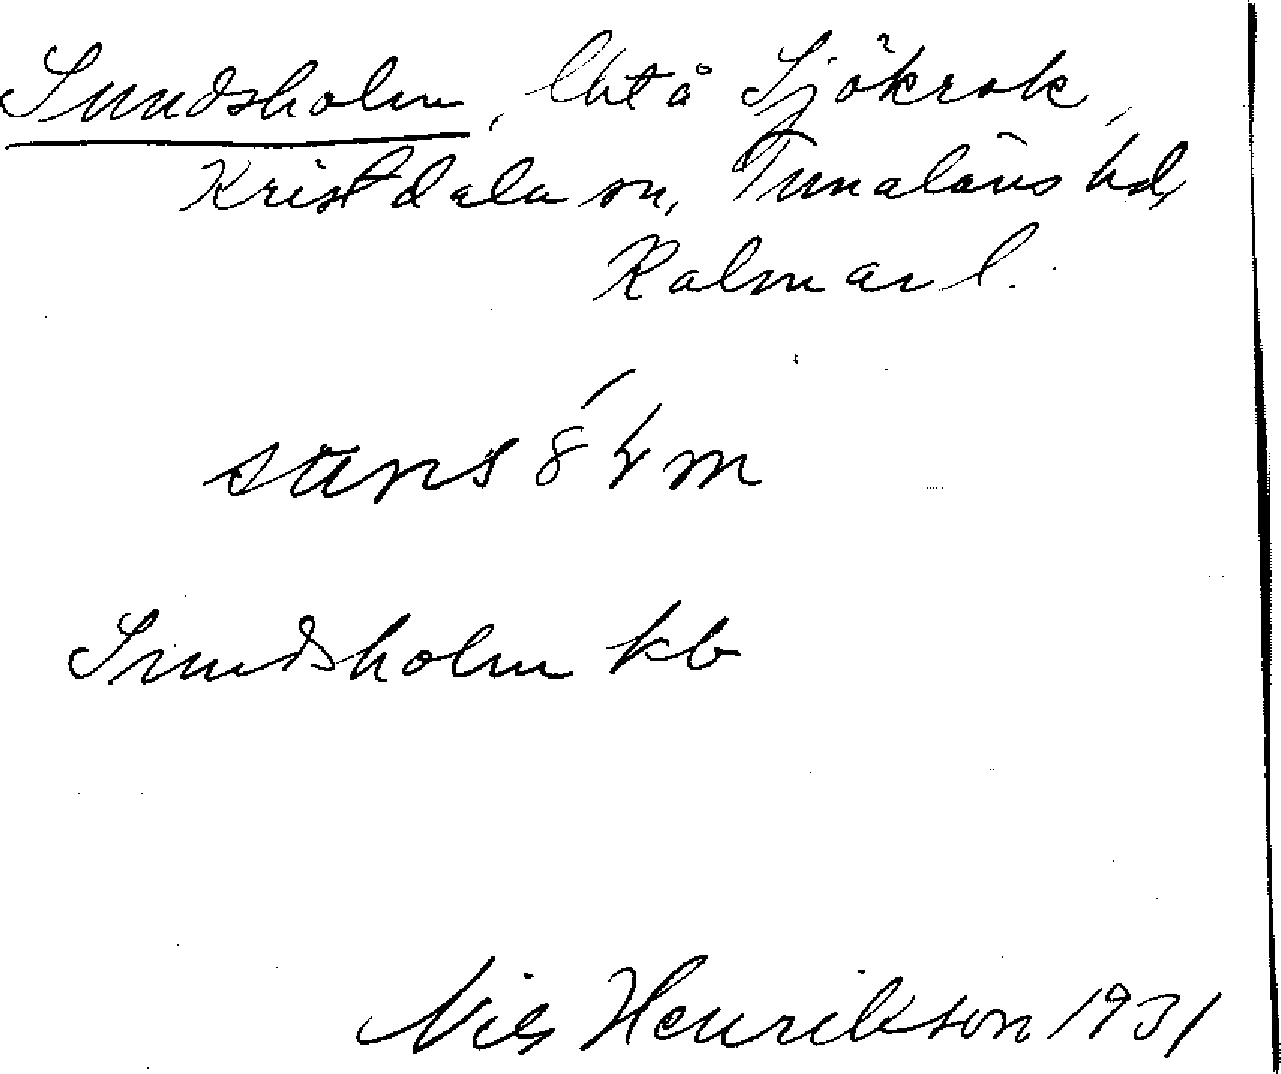 Sundsholm, lht å Sjökrok,
Kristdala sn, Tunaläns hd,
Kalmar l.
Sundsholm kb
Nils Henrikson 1931